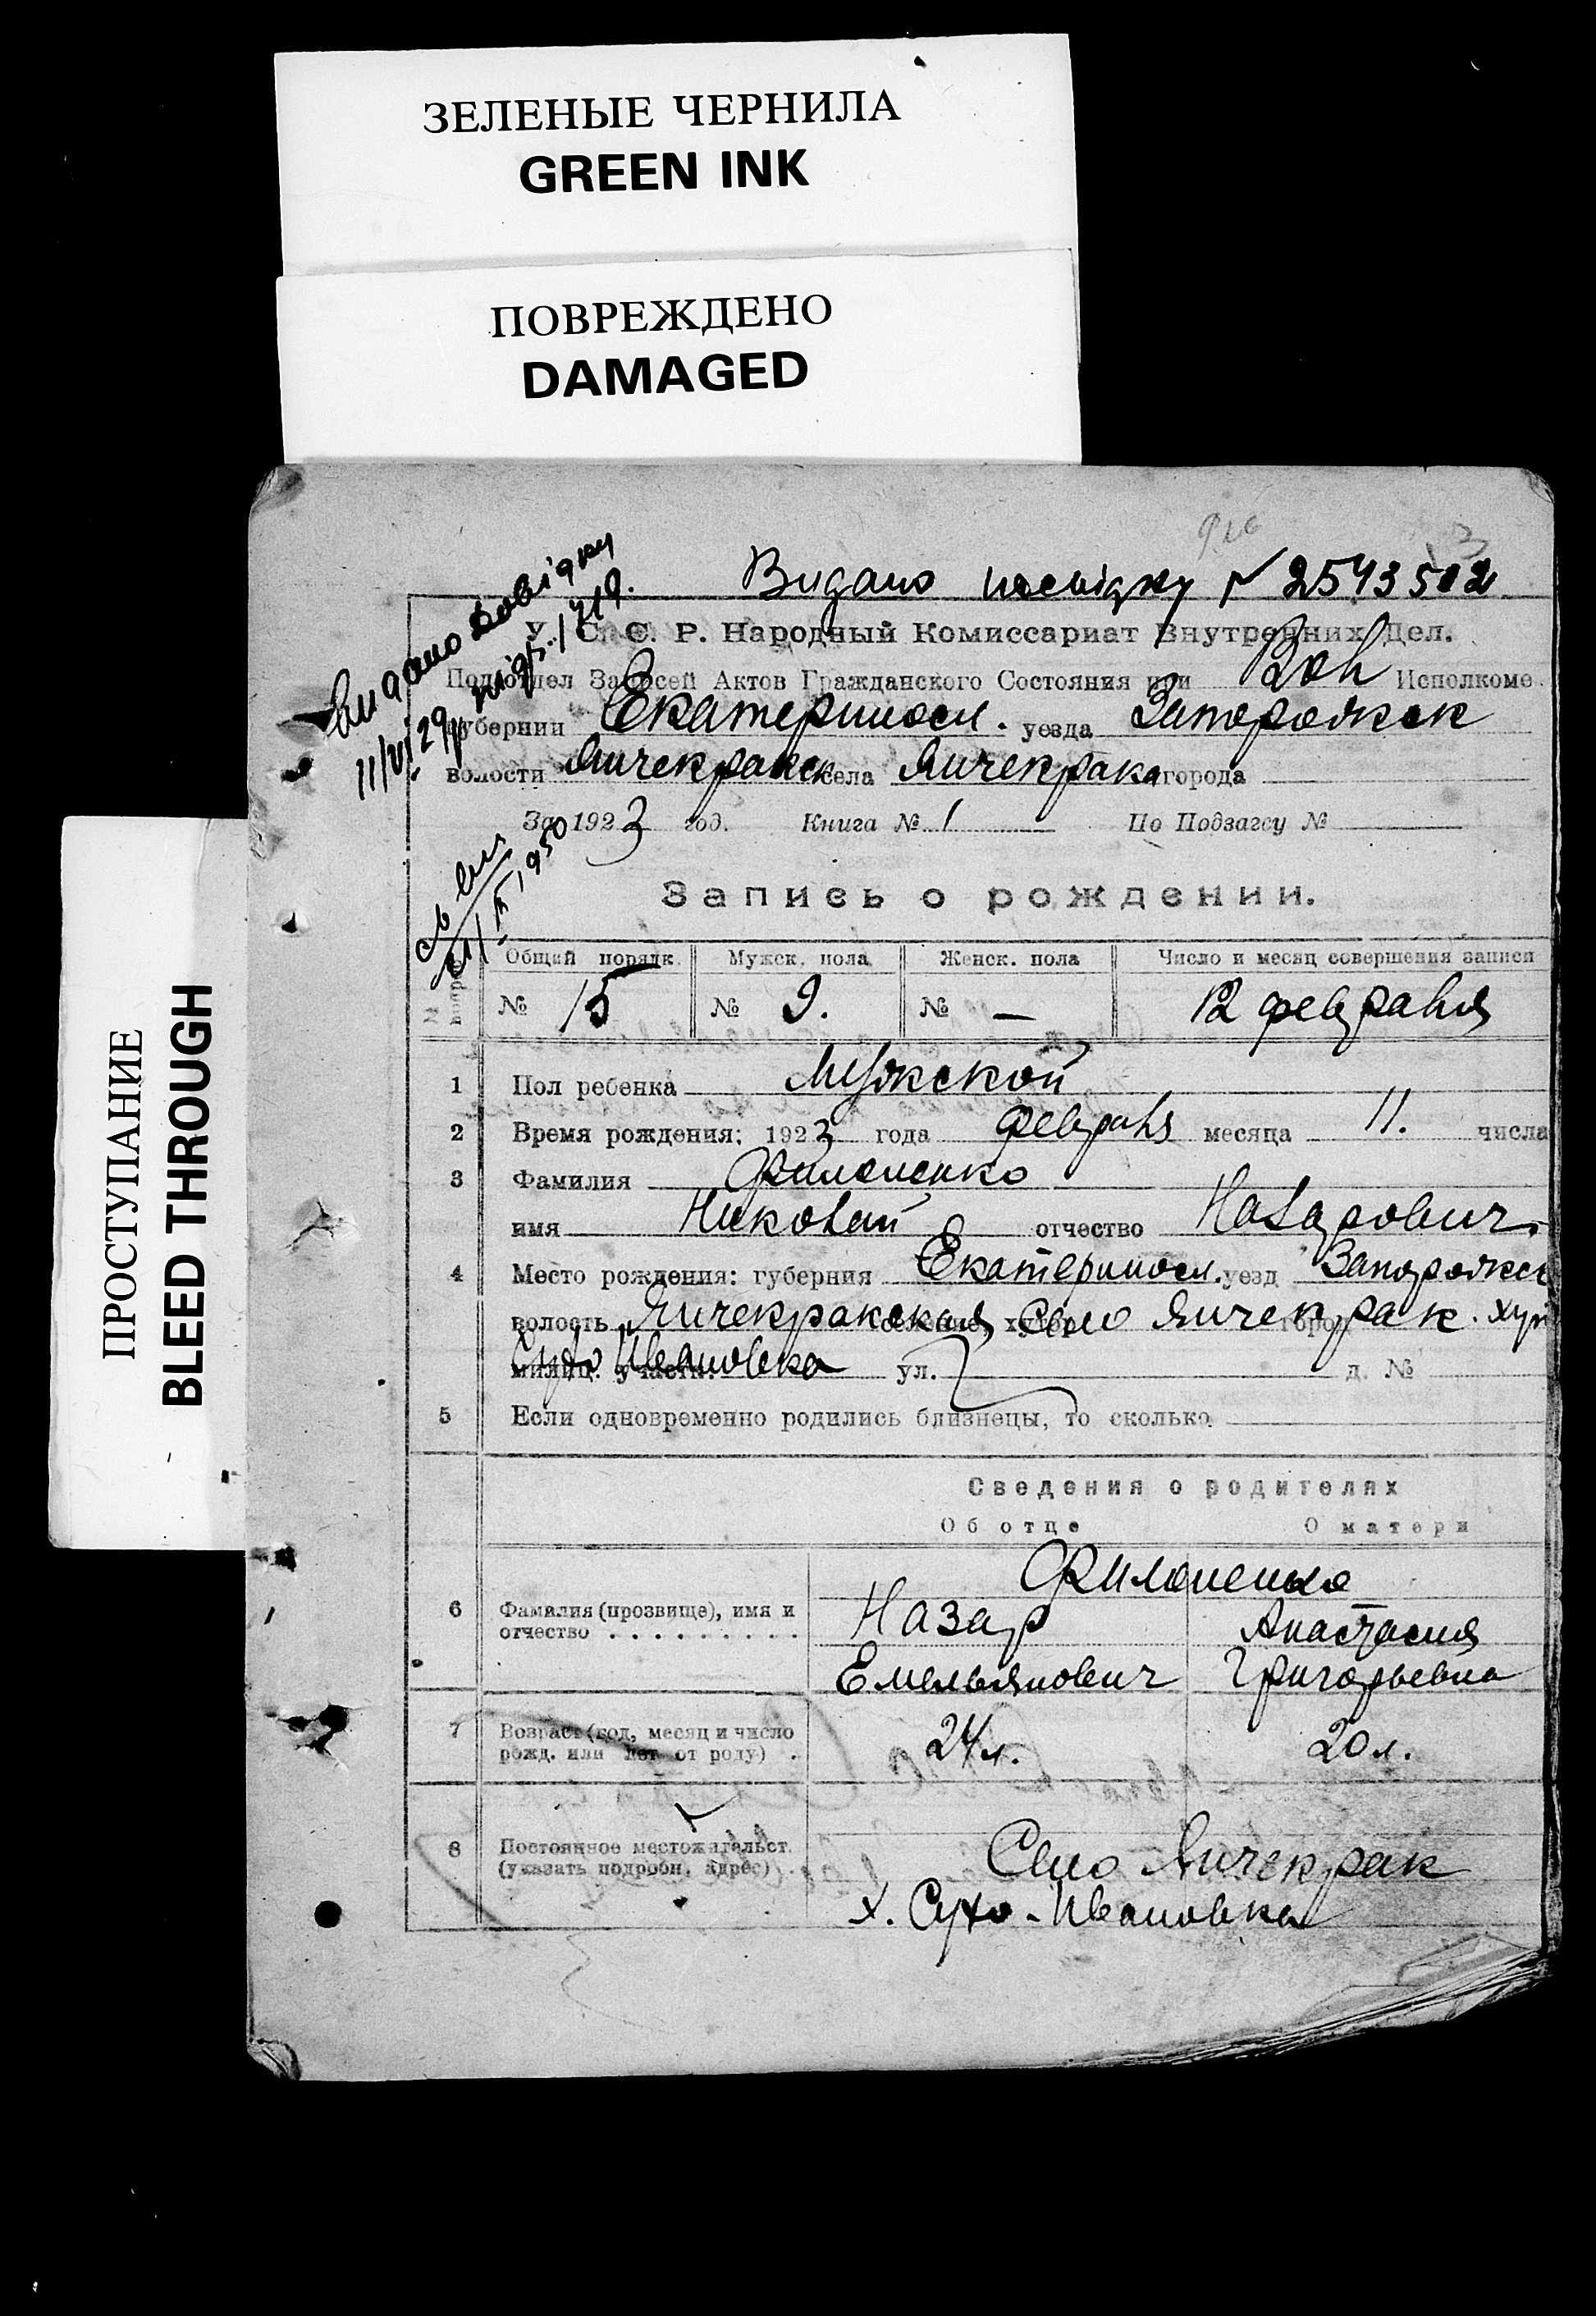 ЗЕЛЕНЫЕ ЧЕРНИЛА
GREEN INK
ПОВРЕЖДЕНО
DAMAGED
ПРОСТУПАНИЕ
BLEED THROUGH
Видано посвідку № 2543502
Видано довідку
11/VI 29р
У. С. С. Р. Народный Комиссариат Внутренних Дел.
Подотдел Записей Актов Гражданского Состояния при Исполкоме
губернии Екатериносл. уезда Запорожск
волости Янчекракск села Янчекрака города
За 1923 год. Книга № 1 По Подзагсу №
1950
Запись о рождении.
Общий порядк. Мужск. пола Женск. пола Число и месяц совершения записи
№ 15 № 9. № — 12 февраля
1 Пол ребенка Мужской
2 Время рождения: 1923 года февраля месяца 11. числа
3 Фамилия Филоненко
имя Николай отчество Назарович
4 Место рождения: губерния Екатериносл. уезд Запорожск
волость Янчекракская село Янчекрак. хут
милиц. участк. Сухо Ивановка ул. д. №
5 Если одновременно родились близнецы, то сколько
Сведения о родителях
Об отце О матери
Филоненко
6 Фамилия (прозвище), имя и отчество . . . . . . . . . Назар Анастасия
Емельянович Григорьевна
7 Возраст (год, месяц и число рожд. или лет от роду) . 24 л. 20 л.
8 Постоянное местожительст. (указать подробн. адрес) . Село Янчекрак
х. Сухо-Ивановка